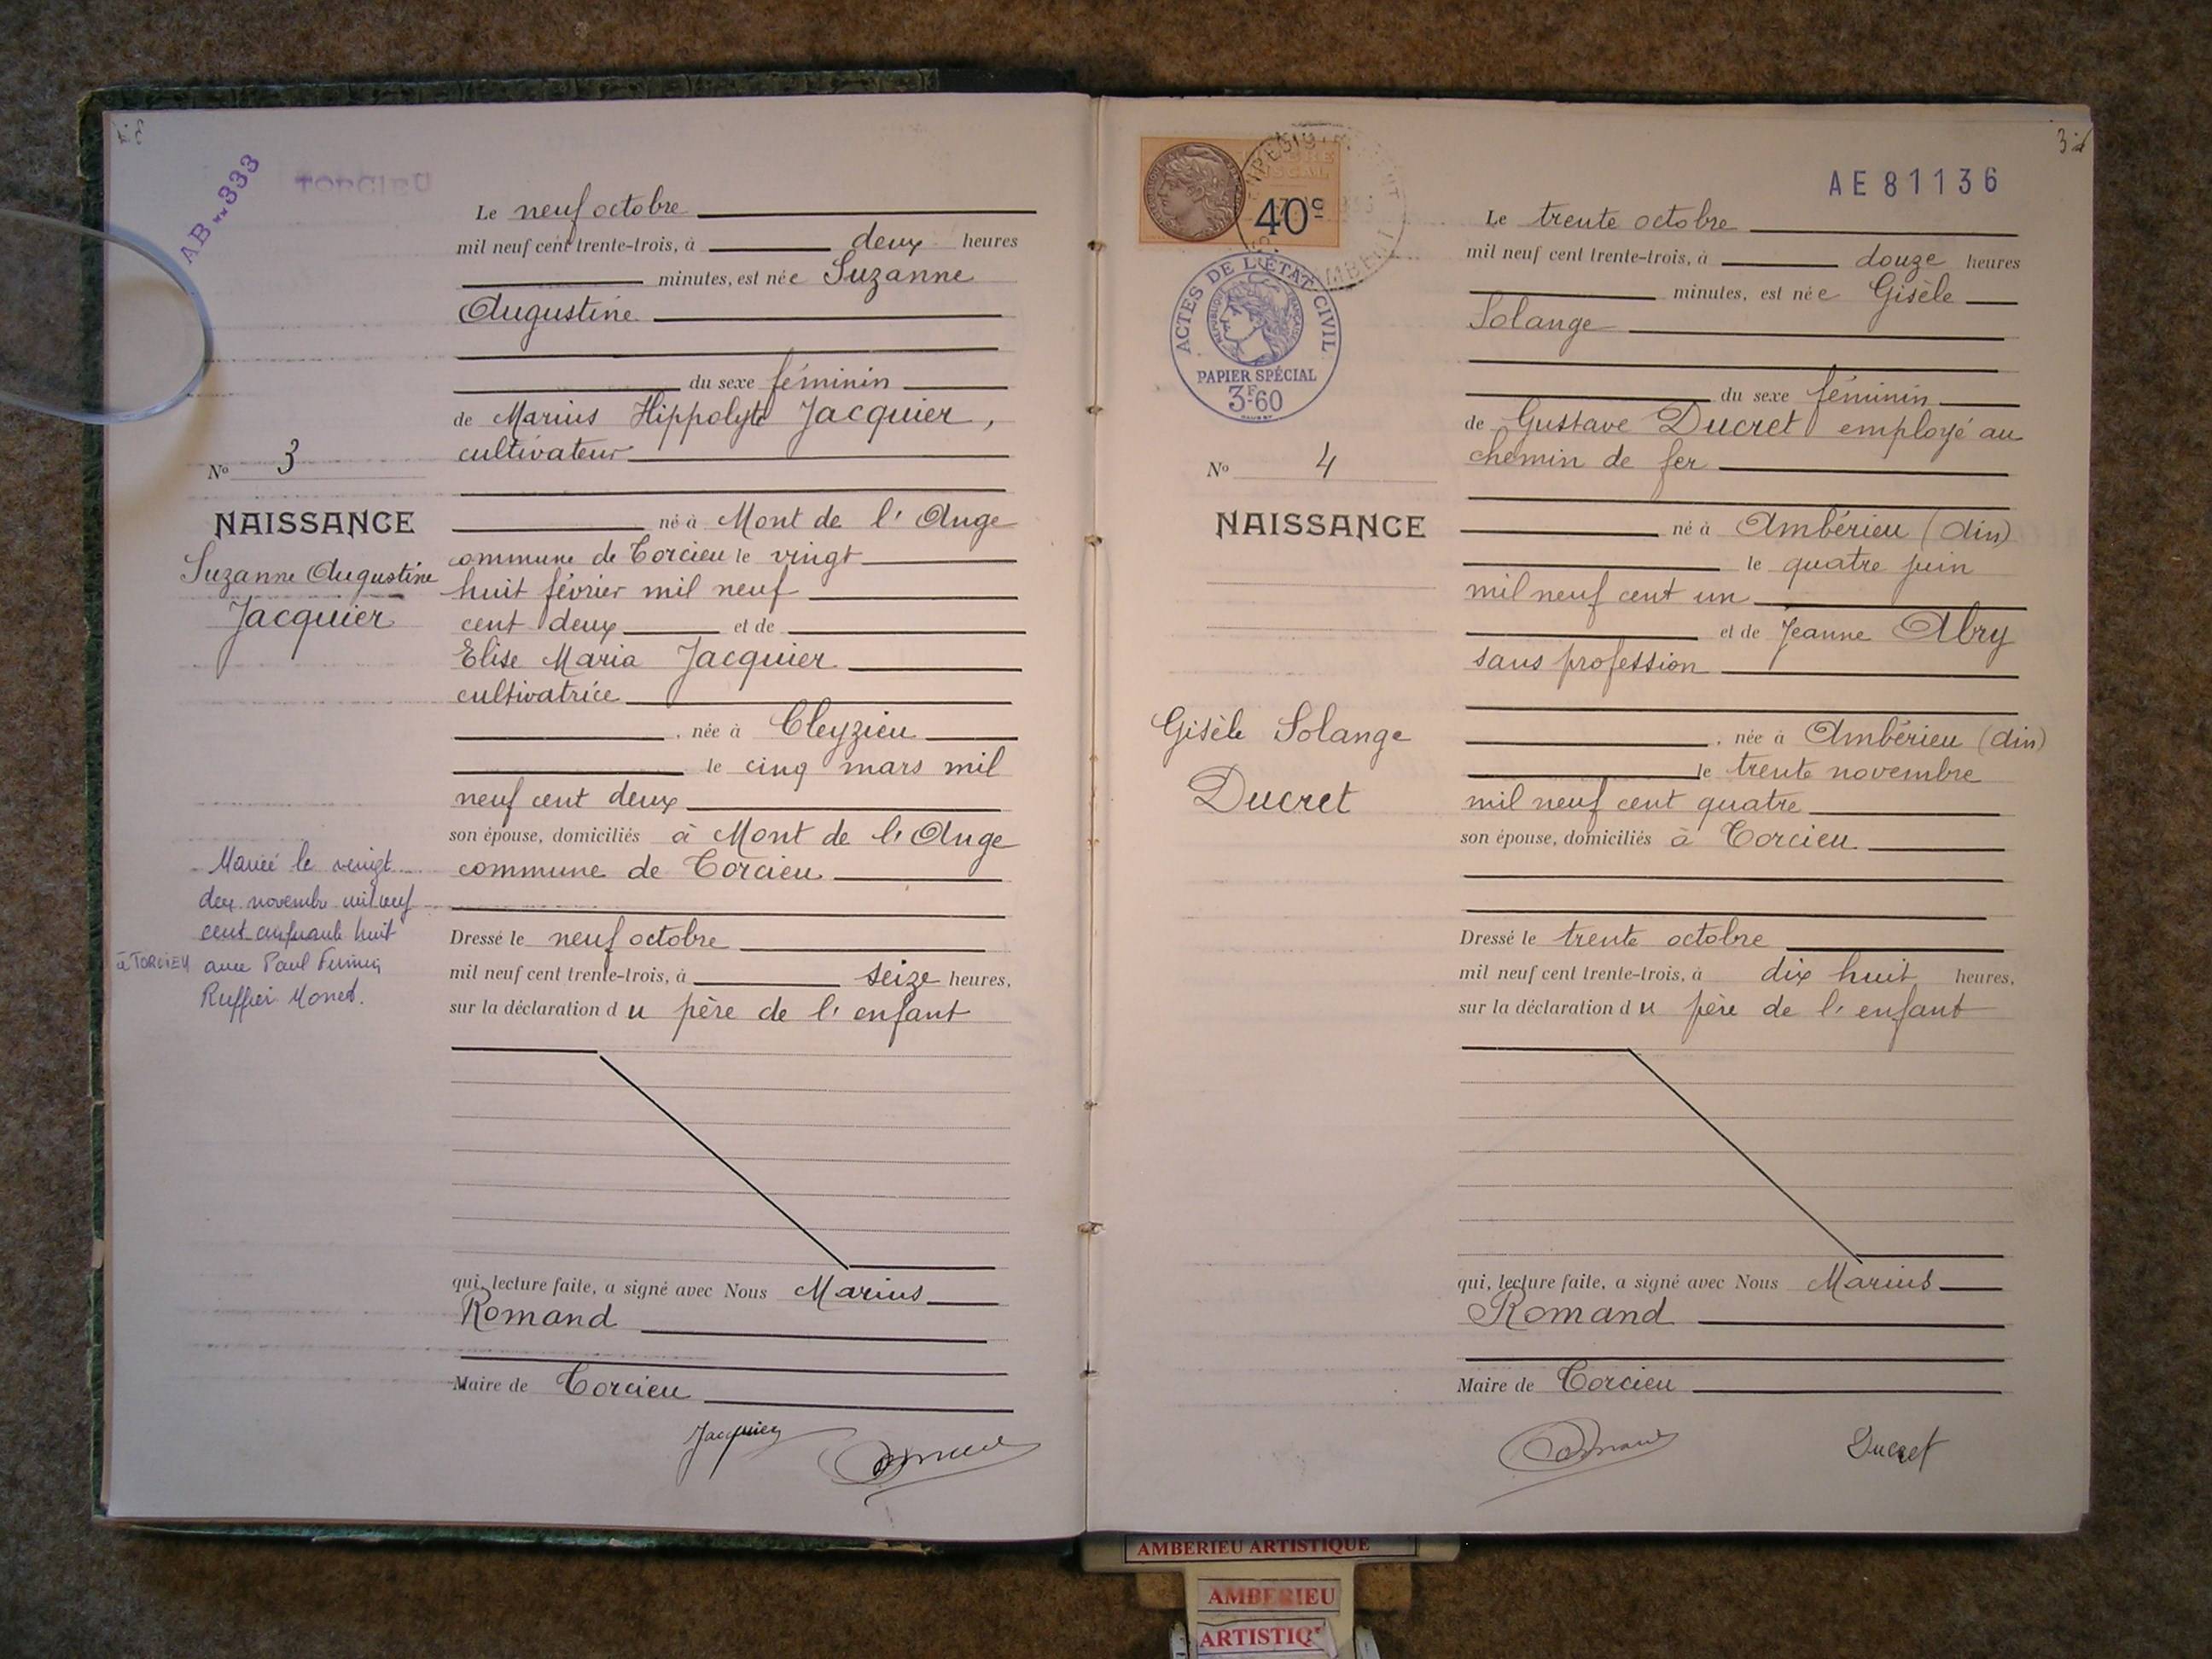 AB..333
TORCIEU
Le neuf octobre
mil neuf cent trente-trois, à deux heures
minutes, est née Suzanne
Augustine
du sexe féminin
de Marius Hippolyte Jacquier,
cultivateur
né à Mont de l'Ange
commune de Torcieu le vingt
huit février mil neuf
cent deux et de
Elise Maria Jacquier
cultivatrice
, née à Cleyzieu
le cinq mars mil
neuf cent deux
son épouse, domiciliés à Mont de l'Ange
commune de Torcieu
Dressé le neuf octobre
mil neuf cent trente-trois, à seize heures,
sur la déclaration du père de l'enfant
qui, lecture faite, a signé avec Nous Marius
Romand
Maire de Torcieu
Jacquier
No 3
NAISSANCE
Suzanne Augustine
Jacquier
Mariée le vingt
deux novembre mil neuf
cent cinquante huit
à TORCIEU avec Paul
Ruffier Monet.
3
AE 81136
40c
ACTES DE L'ÉTAT CIVIL
RÉPUBLIQUE FRANÇAISE
PAPIER SPÉCIAL
3F60
Le trente octobre
mil neuf cent trente-trois, à douze heures
minutes, est née Gisèle
Solange
du sexe féminin
de Gustave Ducret employé au
chemin de fer
né à Ambérieu (Ain)
le quatre juin
mil neuf cent un
et de Jeanne Abry
sans profession
, née à Ambérieu (Ain)
le trente novembre
mil neuf cent quatre
son épouse, domiciliés à Torcieu
Dressé le trente octobre
mil neuf cent trente-trois, à dix huit heures,
sur la déclaration du père de l'enfant
qui, lecture faite, a signé avec Nous Marius
Romand
Maire de Torcieu
Ducret
No 4
NAISSANCE
Gisèle Solange
Ducret
AMBERIEU ARTISTIQUE
AMBERIEU
ARTISTIQ